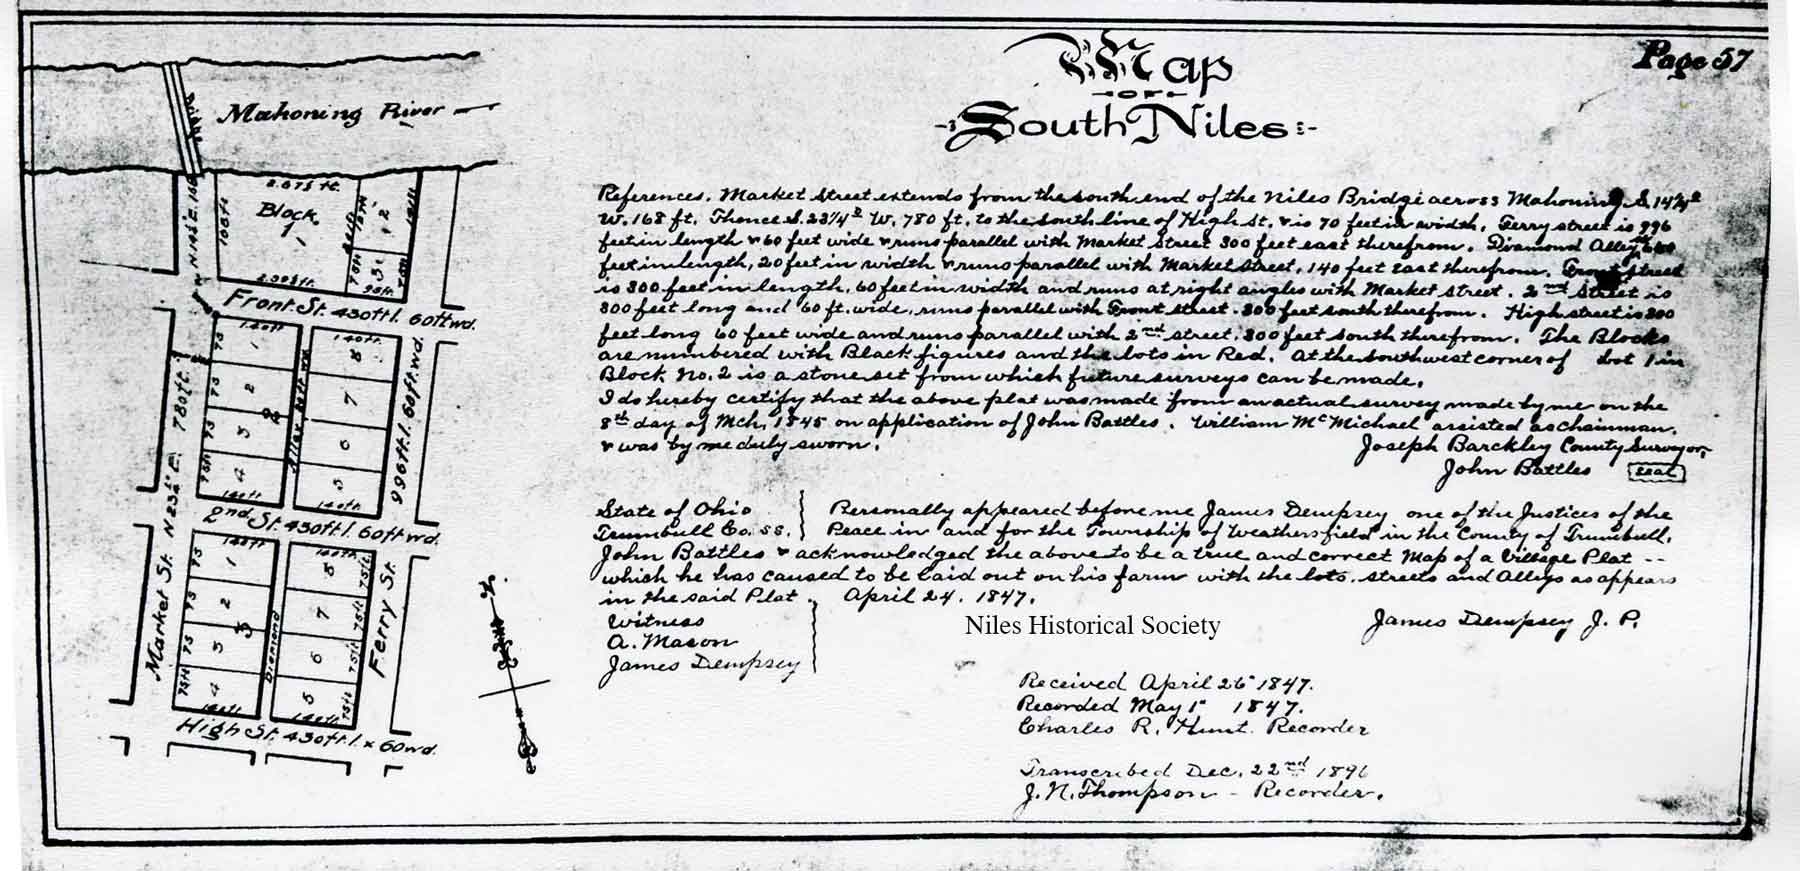 Page 57
Map
of
South Niles
References. Market Street extends from the south end of the Niles Bridge across Mahoning S. 14¼°
W. 168 ft. Thence S. 23¼° W. 780 ft. to the south line of High St. & is 70 feet in width. Ferry street is 996
feet in length & 60 feet wide & runs parallel with Market Street 300 feet east therefrom. Diamond Alley
feet in length, 20 feet in width & runs parallel with Market Street, 140 feet East therefrom. Front Street
is 300 feet in length, 60 feet in width and runs at right angles with Market street. 2nd Street is
300 feet long and 60 ft. wide, runs parallel with Front street. 300 feet south therefrom. High street is 300
feet long 60 feet wide and runs parallel with 2nd street, 300 feet south therefrom. The Blocks
are numbered with Black figures and the lots in Red. At the southwest corner of Lot 1 in
Block No. 2 is a stone set from which future surveys can be made.
I do hereby certify that the above plat was made from an actual survey made by me on the
8th day of Mch, 1845 on application of John Battles. William McMichael assisted as chainman,
& was by me duly sworn.
Joseph Barckley County Surveyor,
John Battles seal
State of Ohio
Trumbull Co. ss.
Personally appeared before me James Dempsey one of the Justices of the
Peace in and for the Township of Weathersfield in the County of Trumbull,
John Battles & acknowledged the above to be a true and correct Map of a Village Plat --
which he has caused to be laid out on his farm with the lots, streets and Alleys as appears
in the said Plat. April 24. 1847.
Witness
A. Mason
James Dempsey
James Dempsey J. P.
Niles Historical Society
Received April 26" 1847.
Recorded May 1" 1847.
Charles R. Hunt. Recorder
Transcribed Dec. 22nd 1896
J. N. Thompson - Recorder.
Mahoning River
Bridge
168 ft
Block
1
1 2
3
Front St. 430 ft l. 60 ft wd.
140 ft 140 ft
75 1 8
75 2 7
75 3 6
75 ft 4 5
2
Alley
140 ft 140 ft
Market St. N 23¼° E. 780 ft.
996 ft l. 60 ft wd.
Ferry St.
2nd St. 430 ft l. 60 ft wd.
140 ft 140 ft
75 1 8 75 ft
75 2 7 75 ft
75 3 6 75 ft
75 ft 4 5 75 ft
3
Diamond
140 ft 140 ft
High St. 430 ft l. x 60 wd.